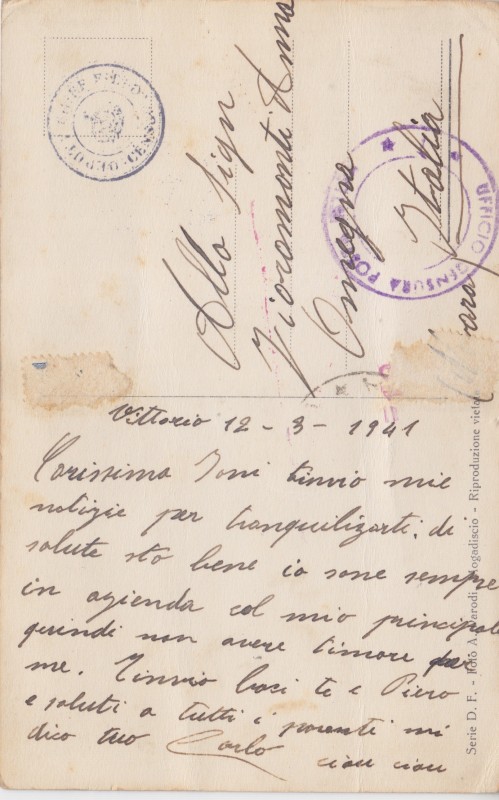 Alla Sign
Fioramonti Anna
Omegna
Italia
UFFICIO CENSURA POS
Vittorio 12-3-1941
Carissima Toni tinvio mie
notizie per tranquilizarti. di
salute sto bene io sono sempre
in azienda col mio principale
quindi non avere timore per
me. Tinvio baci te e Piero
e saluti a tutti i parenti mi
dico tuo Carlo ciau ciau
Serie D. F. - Foto A. Parodi - Mogadiscio - Riproduzione vietata